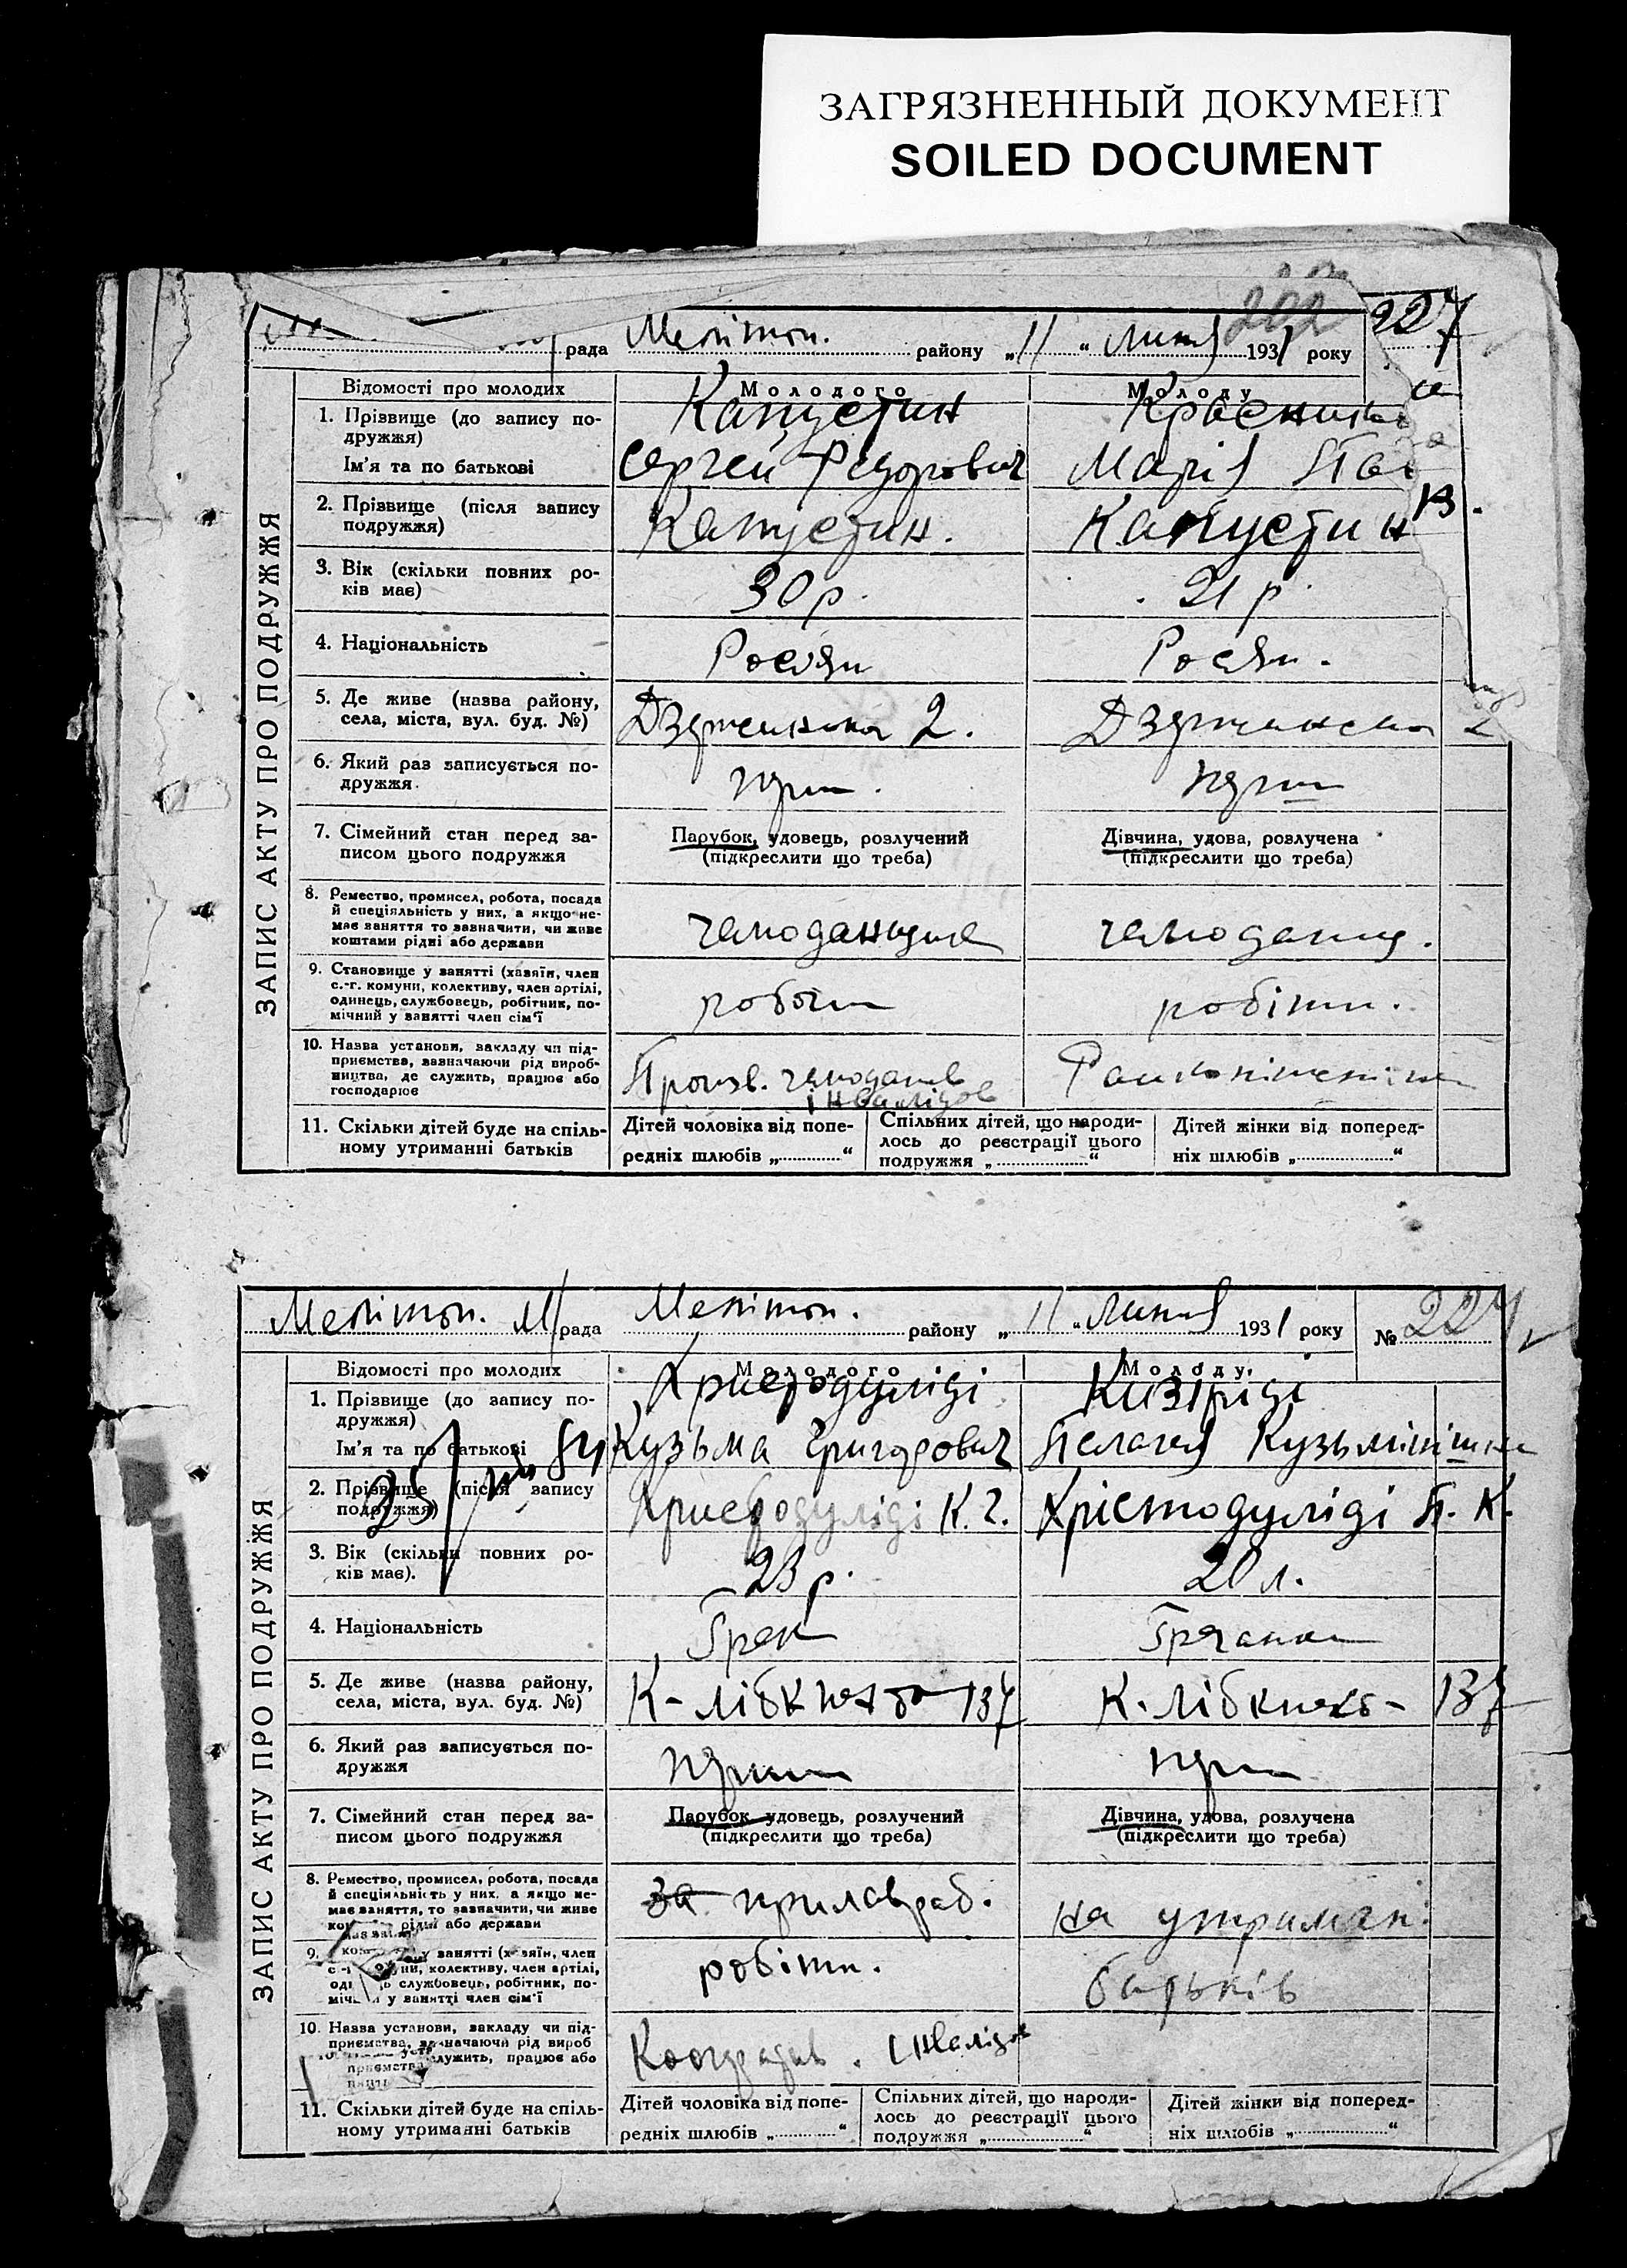 ЗАГРЯЗНЕННЫЙ ДОКУМЕНТ
SOILED DOCUMENT
202
227
рада Мелітоп. району „11“ Липня 1931 року
ЗАПИС АКТУ ПРО ПОДРУЖЖЯ
Відомості про молодих
Молодого
Молоду
1. Прізвище (до запису по-
дружжя)
Ім'я та по батькові
Капустин
Сергей Федорович
Марія
2. Прізвище (після запису
подружжя)
Капустин.
Капустин
3. Вік (скільки повних ро-
ків має)
30 р.
21 р.
4. Національність
Росіян
Росян.
5. Де живе (назва району,
села, міста, вул. буд. №)
2.
6. Який раз записується по-
дружжя.
7. Сімейний стан перед за-
писом цього подружжя
Парубок, удовець, розлучений
(підкреслити що треба)
Дівчина, удова, розлучена
(підкреслити що треба)
8. Ремество, промисел, робота, посада
й спеціяльність у них, а якщо не-
має заняття то зазначити, чи живе
коштами рідні або держави
9. Становище у занятті (хазяїн, член
с.-г. комуни, колективу, член артілі,
одинець, службовець, робітник, по-
мічний у занятті член сім'ї
робітн.
10. Назва установи, закладу чи під-
приємства, зазначаючи рід вироб-
ництва, де служить, працює або
господарює
інвалідов
11. Скільки дітей буде на спіль-
ному утриманні батьків
Дітей чоловіка від попе-
редніх шлюбів „ “
Спільних дітей, що народи-
лось до реєстрації цього
подружжя „ “
Дітей жінки від поперед-
ніх шлюбів „ “
Мелітоп. М/рада Мелітоп. району „11“ Липня 1931 року № 227
ЗАПИС АКТУ ПРО ПОДРУЖЖЯ
Відомості про молодих
Молодого
Молоду
1. Прізвище (до запису по-
дружжя)
Ім'я та по батькові
Христодуліді
Кузьма Григорович
Кизіріді
Пелагея Кузьмінішна
2. Прізвище (після запису
подружжя)
Христодуліді К. Г.
Хрістодуліді П. К.
3. Вік (скільки повних ро-
ків має).
23 р.
20 л.
4. Національність
Грек
Гречанка
5. Де живе (назва району,
села, міста, вул. буд. №)
К-Лібкнехта 137
К. Лібкнехт- 137
6. Який раз записується по-
дружжя
7. Сімейний стан перед за-
писом цього подружжя
Парубок, удовець, розлучений
(підкреслити що треба)
Дівчина, удова, розлучена
(підкреслити що треба)
8. Ремество, промисел, робота, посада
й спеціяльність у них, а якщо не-
має заняття, то зазначити, чи живе
рідні або держави
за прилавраб.
на утриман.
9. у занятті (хазяїн, член
колективу, член артілі,
службовець, робітник, по-
у занятті член сім'ї
робітн.
батьків
10. Назва установи, закладу чи під-
приємства, зазначаючи рід вироб
служить, працює або
Кооператив. Інвалідов
11. Скільки дітей буде на спіль-
ному утриманні батьків
Дітей чоловіка від попе-
редніх шлюбів „ “
Спільних дітей, що народи-
лось до реєстрації цього
подружжя „ “
Дітей жінки від поперед-
ніх шлюбів „ “